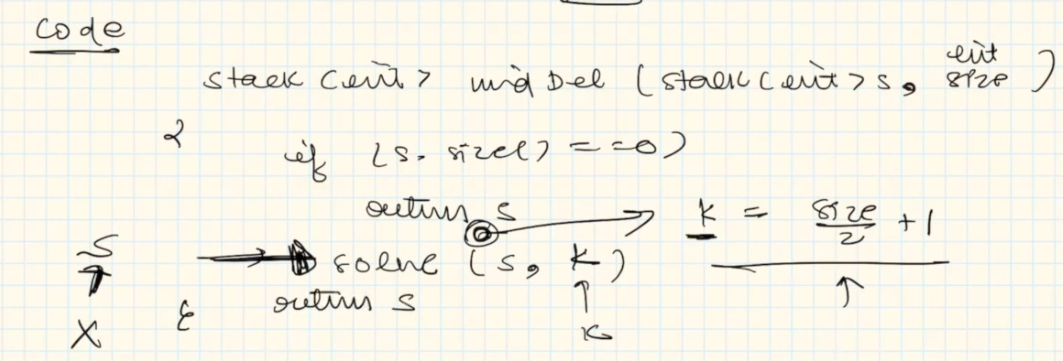 Code
stack<int> midDel (stack<int>s, int size)
{
if (s.size() == 0)
return s
k = size/2 + 1
S
solve (s, k)
return s
}
X
k